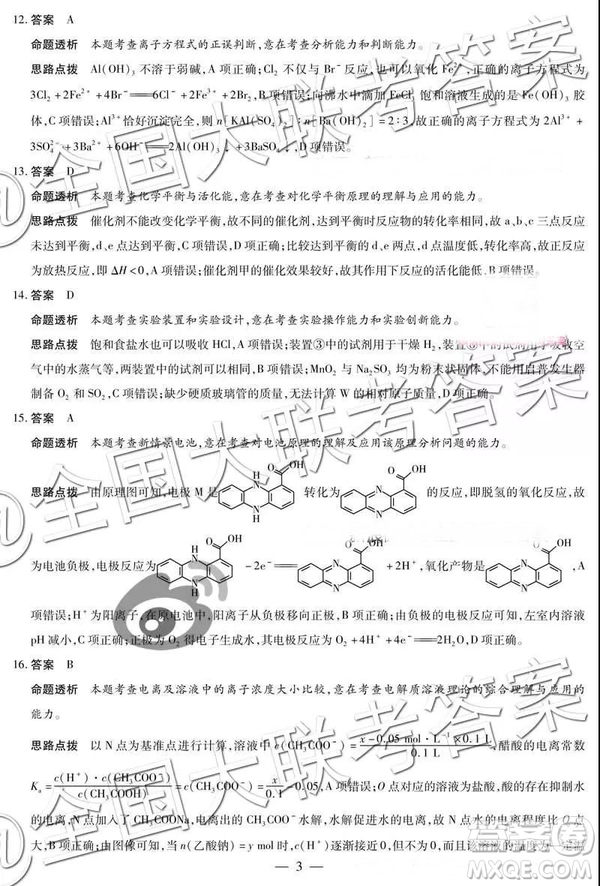 12. 答案 A
命题透析 本题考查离子方程式的正误判断,意在考查分析能力和判断能力。
思路点拨 Al(OH)₃ 不溶于弱碱,A 项正确;Cl₂ 不仅与 Br⁻ 反应,也可以氧化 Fe²⁺,正确的离子方程式为
3Cl₂ + 2Fe²⁺ + 4Br⁻ ══ 6Cl⁻ + 2Fe³⁺ + 2Br₂,B 项错误;向沸水中滴加 FeCl₃ 饱和溶液生成的是 Fe(OH)₃ 胶
体,C 项错误;Al³⁺ 恰好沉淀完全,则 n[KAl(SO₄)₂]:n[Ba(OH)₂] = 2:3,故正确的离子方程式为 2Al³⁺ +
3SO₄²⁻ + 3Ba²⁺ + 6OH⁻ ══ 2Al(OH)₃↓ + 3BaSO₄↓,D 项错误。
13. 答案 D
命题透析 本题考查化学平衡与活化能,意在考查对化学平衡原理的理解与应用的能力。
思路点拨 催化剂不能改变化学平衡,故不同的催化剂、达平衡时反应物的转化率相同,故 a、b、c 三点反应
未达到平衡,B 项错误,C 项错误,D 项正确;比较达到平衡的 d、e 两点,d 点温度低,转化率高,故正反应
为放热反应,即 ΔH<0,A 项错误;催化剂甲的催化效果较好,故其作用下反应的活化能低、
14. 答案 D
命题透析 本题考查实验装置和实验设计,意在考查实验操作能力和实验创新能力。
思路点拨 饱和食盐水也可以吸收 HCl,A 项错误;装置③中的试剂用于干燥 H₂,装置⑤中的试剂用于吸收空
气中的水蒸气等,C 项错误;MnO₂ 与 Na₂SO₃ 均为粉末状固体,不能用启普发生器
制备 O₂ 和 SO₂,C 项错误;缺少硬质玻璃管的质量,无法计算 W 的相对原子质量,D 项正确。
15. 答案 A
命题透析 本题考查新情景电池,意在考查对电池原理的理解及应用该原理分析问题的能力。
思路点拨 由原理图可知,电极 M 是 转化为 的反应,即脱氢的氧化反应,故
为电池负极,电极反应为 −2e⁻ ══ +2H⁺,氧化产物是 ,A
项错误;H⁺ 为阳离子,在原电池中,阳离子从负极移向正极,B 项正确;由负极的电极反应可知,左室内溶液
pH 减小,C 项正确;正极为 O₂ 得电子生成水,其电极反应为 O₂ + 4H⁺ + 4e⁻ ══ 2H₂O,D 项正确。
16. 答案 B
命题透析 本题考查电离及溶液中的离子浓度大小比较,意在考查电解质溶液理论的综合理解与应用的
能力。
思路点拨 以 N 点为基准点进行计算,溶液中 c(CH₃COO⁻) = (x − 0.05 mol·L⁻¹ × 0.1 L)/0.1 L,醋酸的电离常数
Kₐ = c(H⁺)·c(CH₃COO⁻)/c(CH₃COOH) = c(CH₃COO⁻) = x/0.1 − 0.05,A 项错误;O 点对应的溶液为盐酸,酸的存在抑制水
的电离,N 点加入 CH₃COONa
大;由图像可知,当 n(乙酸钠) = y mol 时,c(H⁺) 逐渐接近 0,但不为 0,而该溶液的温度为一定
3
@全国大联考答案